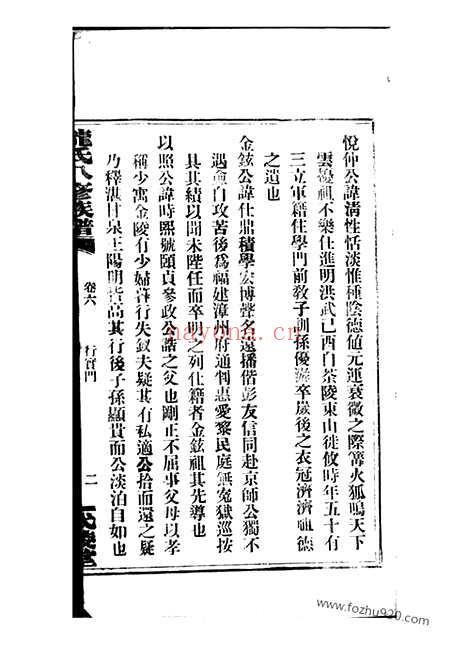 悅仲公諱清性恬淡惟種陰德値元運衰微之際篝火狐鳴天下
雲擾祖不樂仕進明洪武己酉自茶陵東山徙攸時年五十有
三立軍籍住學門前敎子訓孫優游卒歲後之衣冠濟濟祖德
之遺也
金鉉公諱仕鼎積學宏博聲名遠播偕彭友信同赴京師公獨不
遇僉自攻苦後爲福建漳州府通判惠愛黎民庭無寃獄巡按
具其績以聞未陞任而卒明之列仕籍者金鉉祖其先導也
以照公諱時熙號頤貞參政公誥之父也剛正不屈事父母以孝
稱少寓金陵有少婦暮行失釵夫疑其有私適公拾而還之疑
乃釋湛甘泉王陽明皆高其行後子孫顯貴而公淡泊自如也
氏八修族譜
卷六
行實門
二
mayona.com
www.fozhu920.com